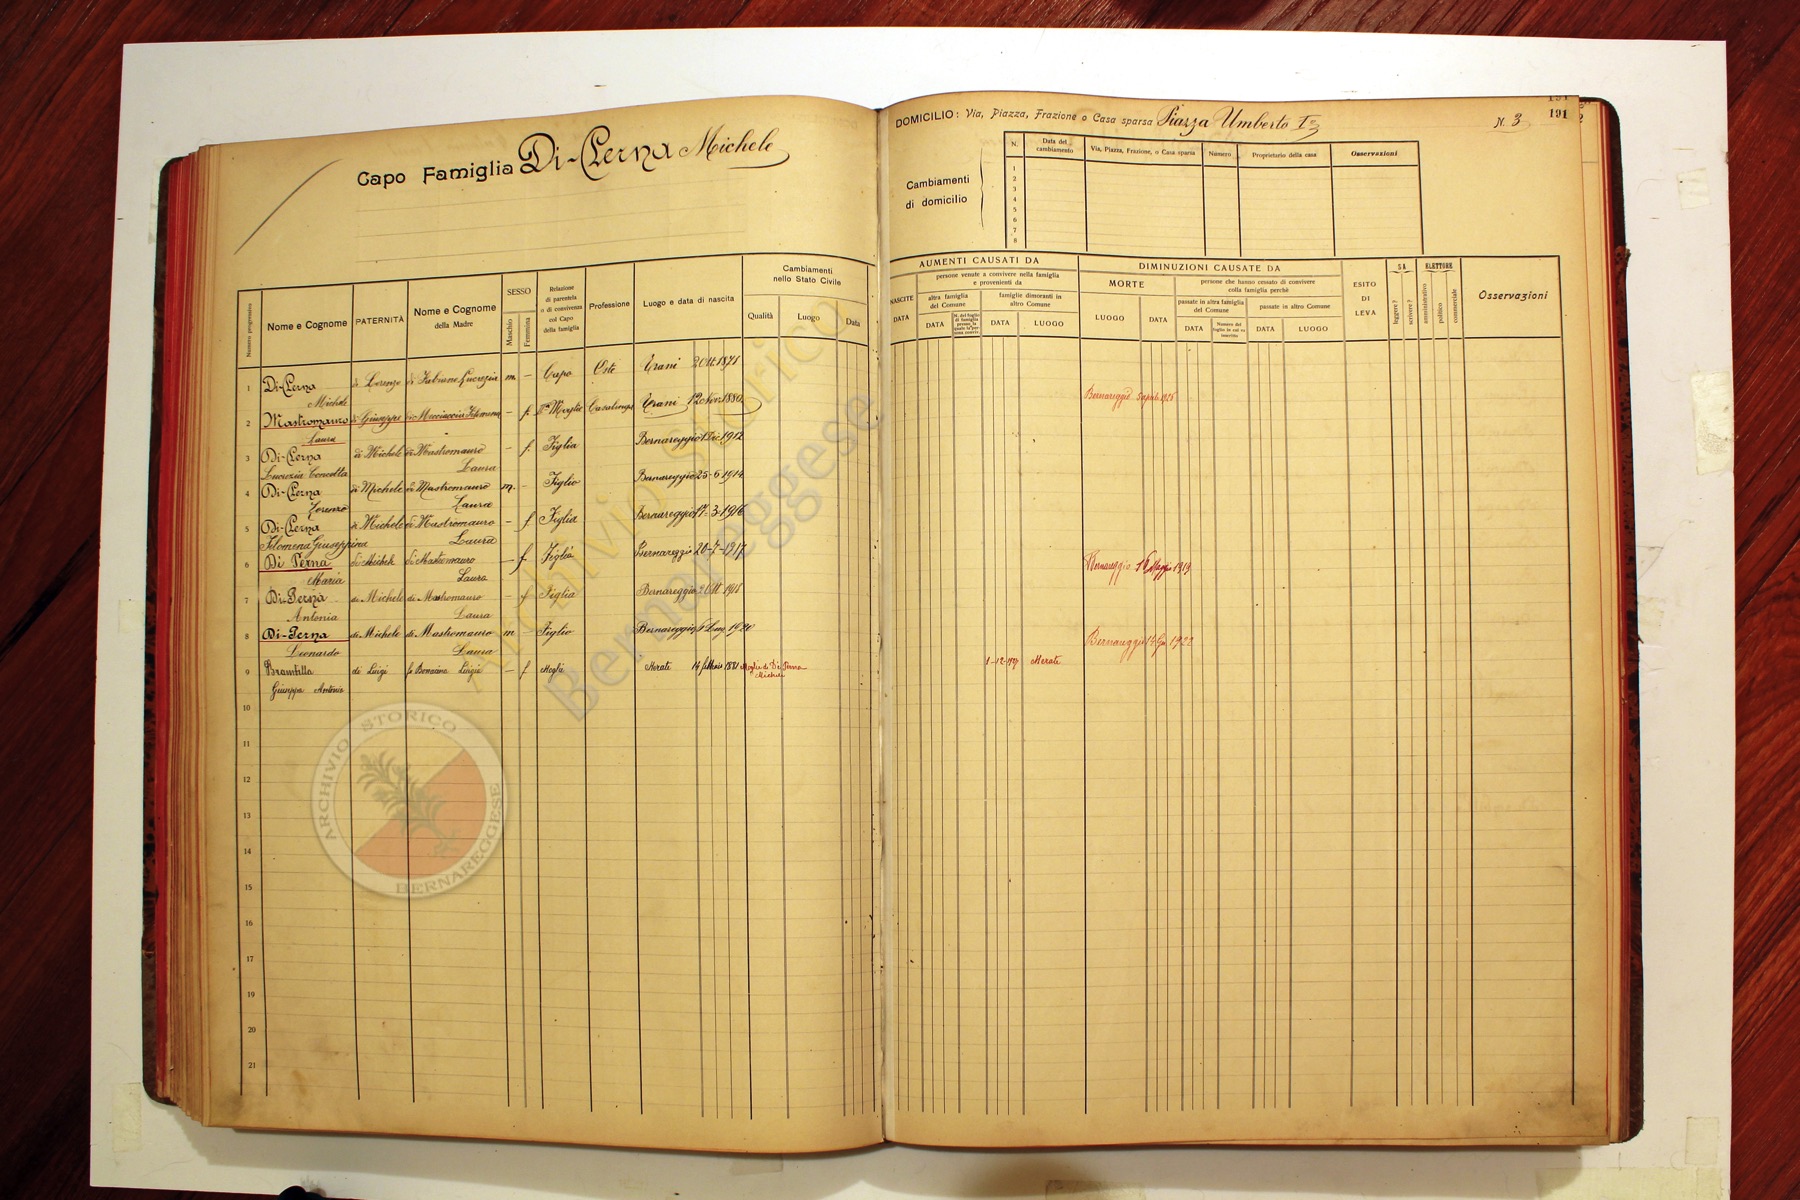 Capo Famiglia Di-Lerna Michele
DOMICILIO: Via, Piazza, Frazione o Casa sparsa Piazza Umberto I° N. 3
191
191
2
Cambiamenti
di domicilio
N. Data del cambiamento Via, Piazza, Frazione, o Casa sparsa Numero Proprietario della casa Osservazioni
1
2
3
4
5
6
7
8
Numero progressivo
Nome e Cognome
PATERNITÀ
Nome e Cognome
della Madre
SESSO
Maschio
Femmina
Relazione
di parentela
o di convivenza
col Capo
della famiglia
Professione
Luogo e data di nascita
Cambiamenti
nello Stato Civile
Qualità Luogo Data
AUMENTI CAUSATI DA
NASCITE
DATA
persone venute a convivere nella famiglia
e provenienti da
altra famiglia
del Comune
DATA
famiglie dimoranti in
altro Comune
DATA LUOGO
DIMINUZIONI CAUSATE DA
MORTE
LUOGO DATA
persone che hanno cessato di convivere
colla famiglia perchè
passate in altra famiglia
del Comune
DATA
Numero del
foglio in cui va
inscritto
passate in altro Comune
DATA LUOGO
ESITO
DI
LEVA
SA
leggere?
scrivere?
ELETTORE
amministrativo
politico
commerciale
Osservazioni
1 Di-Lerna di Lorenzo di Fabiano Lucrezia m. – Capo Oste Trani 2 Ott. 1871
Michele
2 Mastromauro di Giuseppe di – f. Moglie Casalinga Trani 12 Nov. 1880 Bernareggio
Laura
3 Di-Lerna di Michele di Mastromauro – f. Figlia Bernareggio 1 Dic. 1912
Lucrezia Concetta Laura
4 Di-Lerna di Michele di Mastromauro m. – Figlio Bernareggio 25-6-1914
Lorenzo Laura
5 Di-Lerna di Michele di Mastromauro – f Figlia Bernareggio 17-3-1916
Filomena Giuseppina Laura
6 Di Terna di Michele di Mastromauro – f. Figlia Bernareggio 1917 Bernareggio 16 Maggio 1919
Maria Laura
7 Di-Terna di Michele di Mastromauro – f Figlia Bernareggio 2 Ott 1918
Antonia Laura
8 Di-Terna di Michele di Mastromauro m – Figlio Bernareggio 1920 Bernareggio 1922
Leonardo Laura
9 Brambilla di Luigi fu Bonsaina Luigia – f Moglie Merate 14 febbraio 1881 Moglie di Di Terna 1-12-1927 Merate
Giuseppa Antonia Michele
10
11
12
13
14
15
16
17
18
19
20
21
Archivio Storico
Bernareggese
ARCHIVIO STORICO
BERNAREGGESE